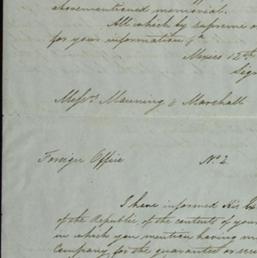 abovementioned memorial.
All which by supreme o
for your information &a
Mexico 12th
Sign
Messrs Manning & Marshall
Foreign Office No 2
I have informed His Ex
of the Republic of the contents of your
in which you mention having m
Company for the guarantee or secu